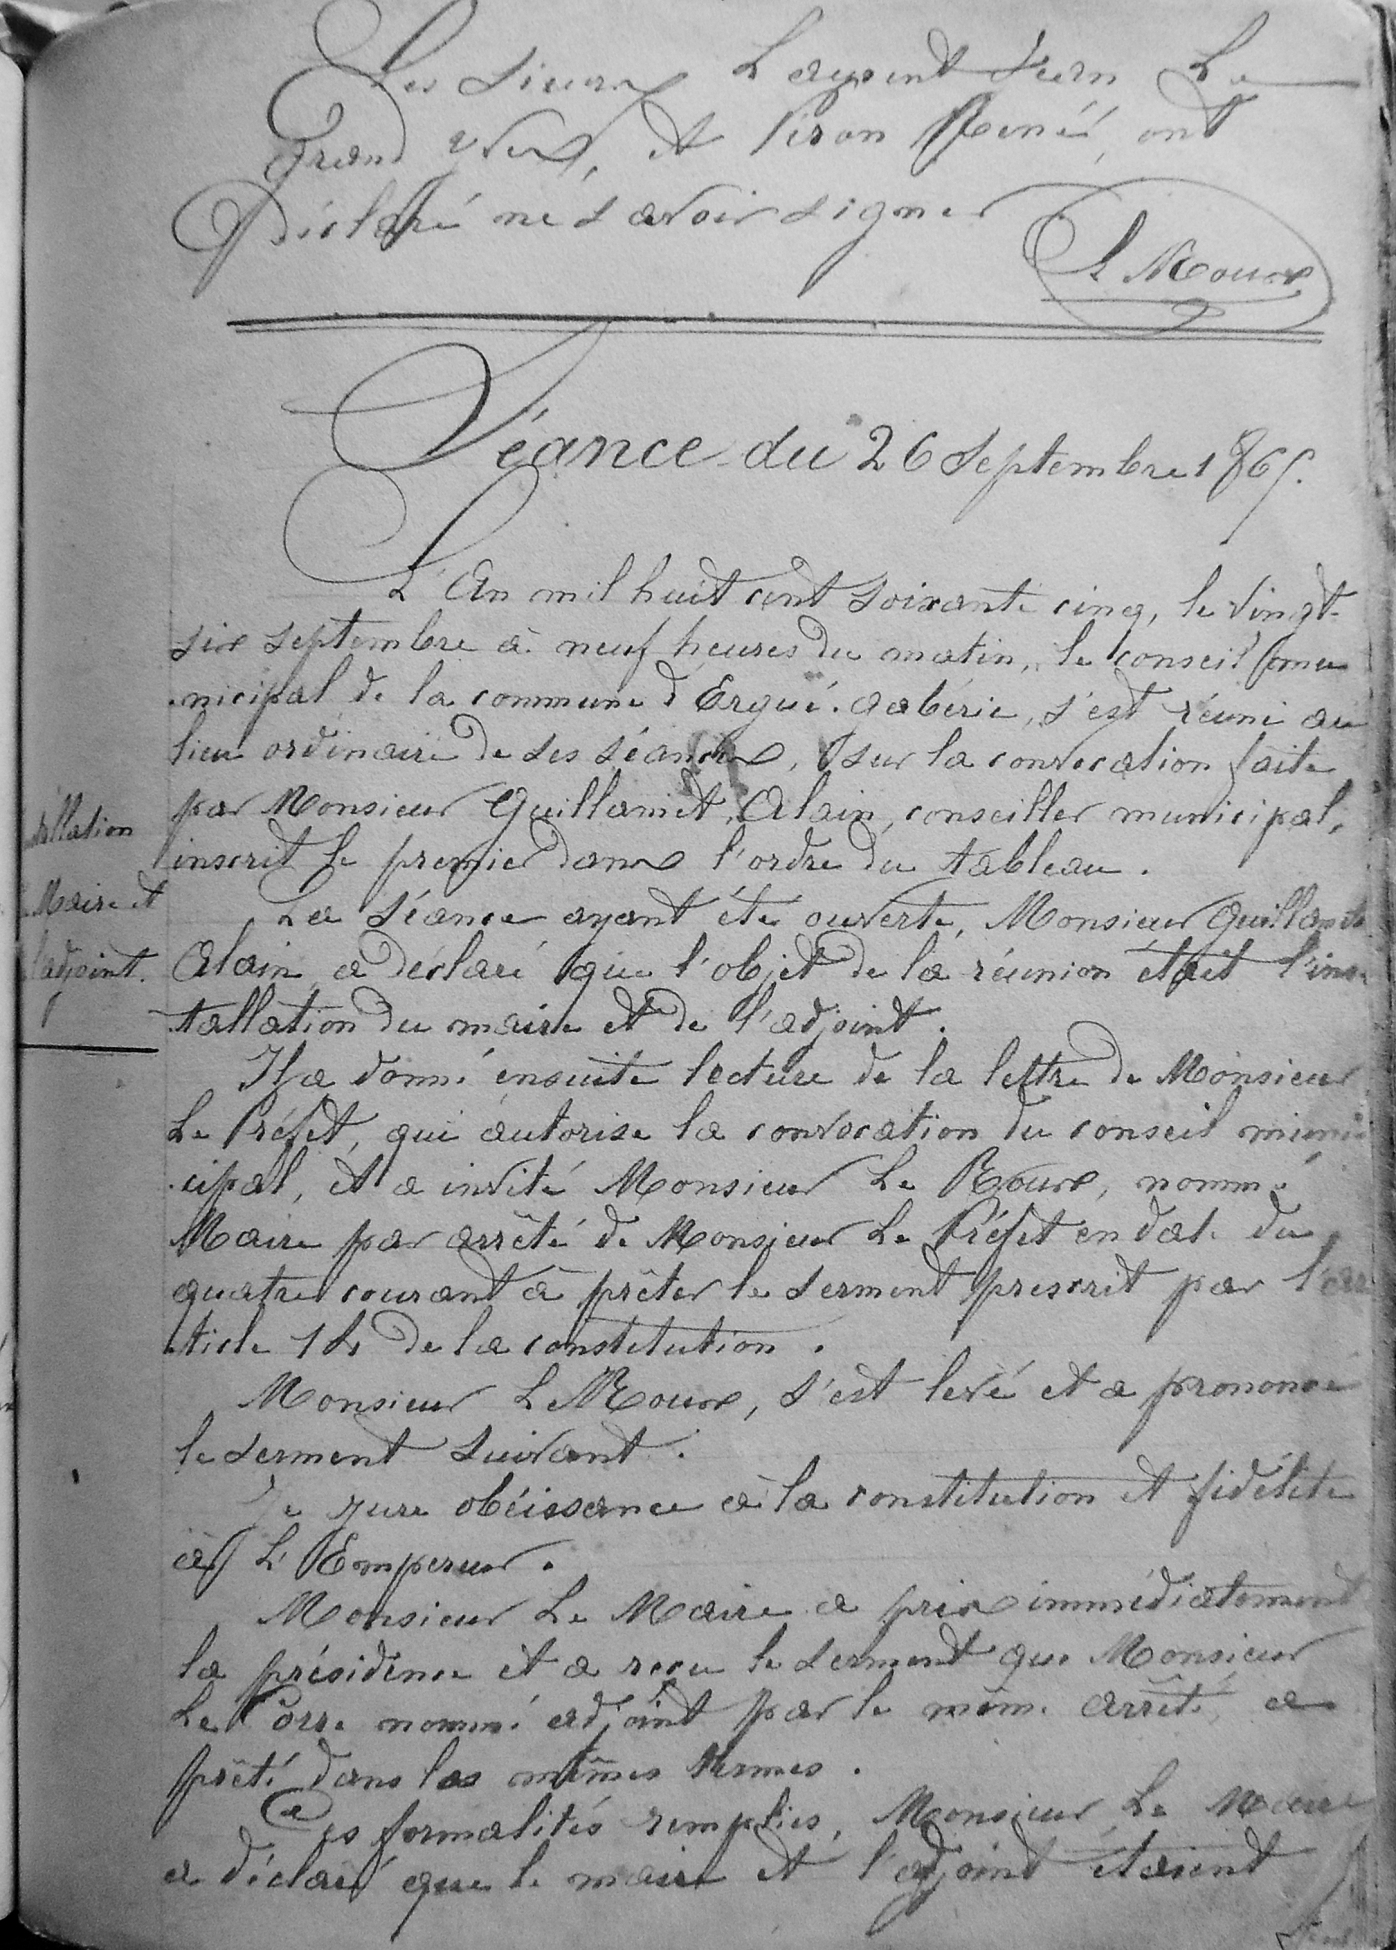 Les sieurs Laurent Jean Le
Grand Yves, et Piron René, ont
Déclaré ne savoir signer
Le Roux
Séance du 26 Septembre 1865.
L'An mil huit cent soixante cinq, le vingt-
six septembre à neuf heures du matin, le conseil mu
nicipal de la commune d'Ergué-Gabéric, s'est réuni au
lieu ordinaire de ses séances, sur la convocation faite
par Monsieur Guillamet, Alain, conseiller municipal,
inscrit le premier dans l'ordre du tableau.
tallation
Maire et
l'adjoint.
La séance ayant été ouverte, Monsieur Guillamet
Alain, a déclaré que l'objet de la réunion était l'ins-
tallation du maire et de l'adjoint.
Il a donné ensuite lecture de la lettre de Monsieur
Le Préfet, qui autorise la convocation du conseil muni
cipal, et a invité Monsieur Le Roux, nommé
Maire par arrêté de Monsieur Le Préfet en date du
quatre courant à prêter le serment prescrit par l'ar
ticle 14 de la constitution.
Monsieur Le Roux, s'est levé et a prononcé
le serment suivant.
Je jure obéissance à la constitution et fidélité
à L'Empereur.
Monsieur Le Maire a pris immédiatement
la présidence et a reçu le serment que Monsieur
Le Corre nommé adjoint par le même arrêté, a
prêté dans les mêmes termes.
Ces formalités remplies, Monsieur Le Maire
a déclaré que le maire et l'adjoint étaient